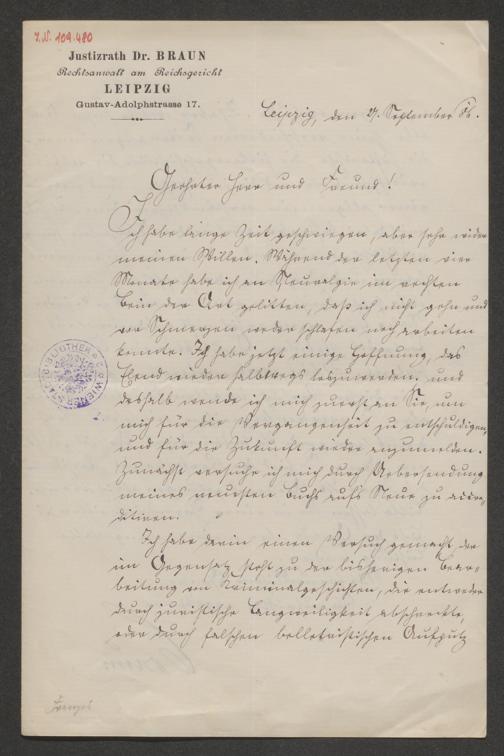 J.N. 109.480
Justizrath Dr. BRAUN
Rechtsanwalt am Reichsgericht
LEIPZIG
Gustav-Adolphstrasse 17.
Leipzig, den 27. September 86.
Geehrter Herr und Freund!
Ich habe lange Zeit geschwiegen, aber sehr wider
meinen Willen. Während der letzten vier
Monate habe ich an Neuralgie im rechten
Bein der Art gelitten, daß ich nicht gehn und
vor Schmerzen weder schlafen noch arbeiten
konnte. Ich habe jetzt einige Hoffnung, das
Elend wieder halbwegs loszuwerden. und
deshalb wende ich mich zuerst an Sie, um
mich für die Vergangenheit zu entschuldigen,
und für die Zukunft wieder anzumelden.
Zunächst versuche ich mich durch Uebersendung
meines neuesten Buchs aufs Neue zu accre-
ditiren.
Ich habe darin einen Versuch gemacht der
im Gegensatz steht zu der bisherigen Bear-
beitung von Kriminalgeschichten, die entweder
durch juristische Langweiligkeit abschreckte,
oder durch falschen belletristischen Aufputz
Franzos